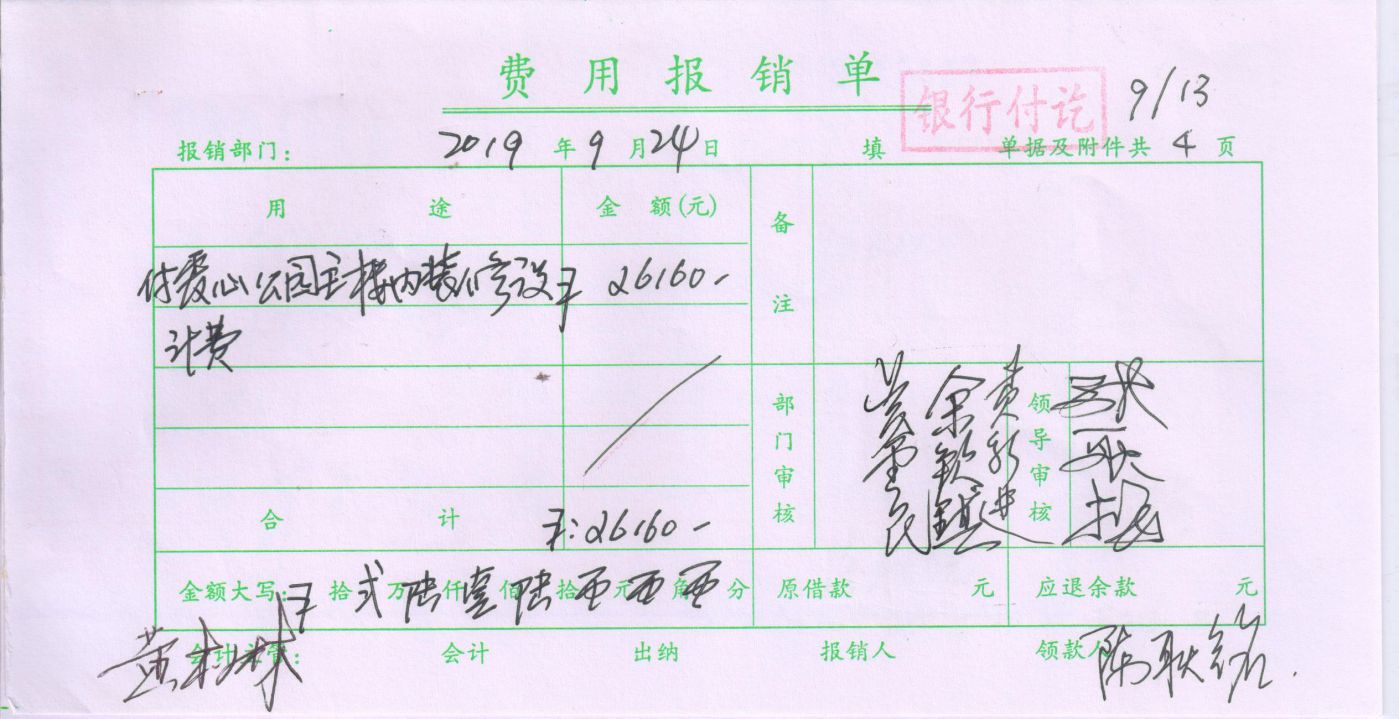 费用报销单
银行付讫
9/13
报销部门: 2019年9月24日 填 单据及附件共4页
用途 金额(元) 备注
付爱心公园主楼内装修设 ¥ 26160-
计费
部门审核 领导审核
合计 ¥:26160-
金额大写: ¥拾弍万陆仟壹佰陆拾 元 角 分 原借款 元 应退余款 元
会计主管: 会计 出纳 报销人 领款人 陈联铭